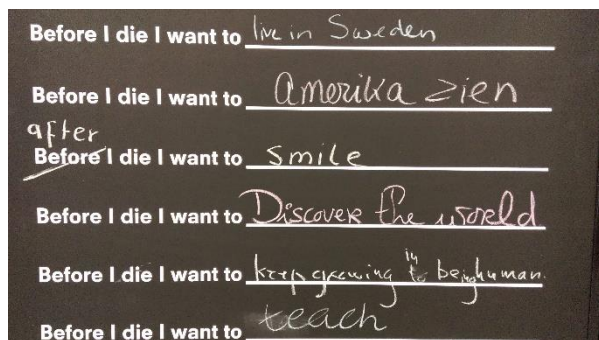 Before I die I want to live in Sweden
Before I die I want to Amerika zien
after
Before I die I want to smile
Before I die I want to Discover the world
in
Before I die I want to keep growing to being human.
Before I die I want to teach